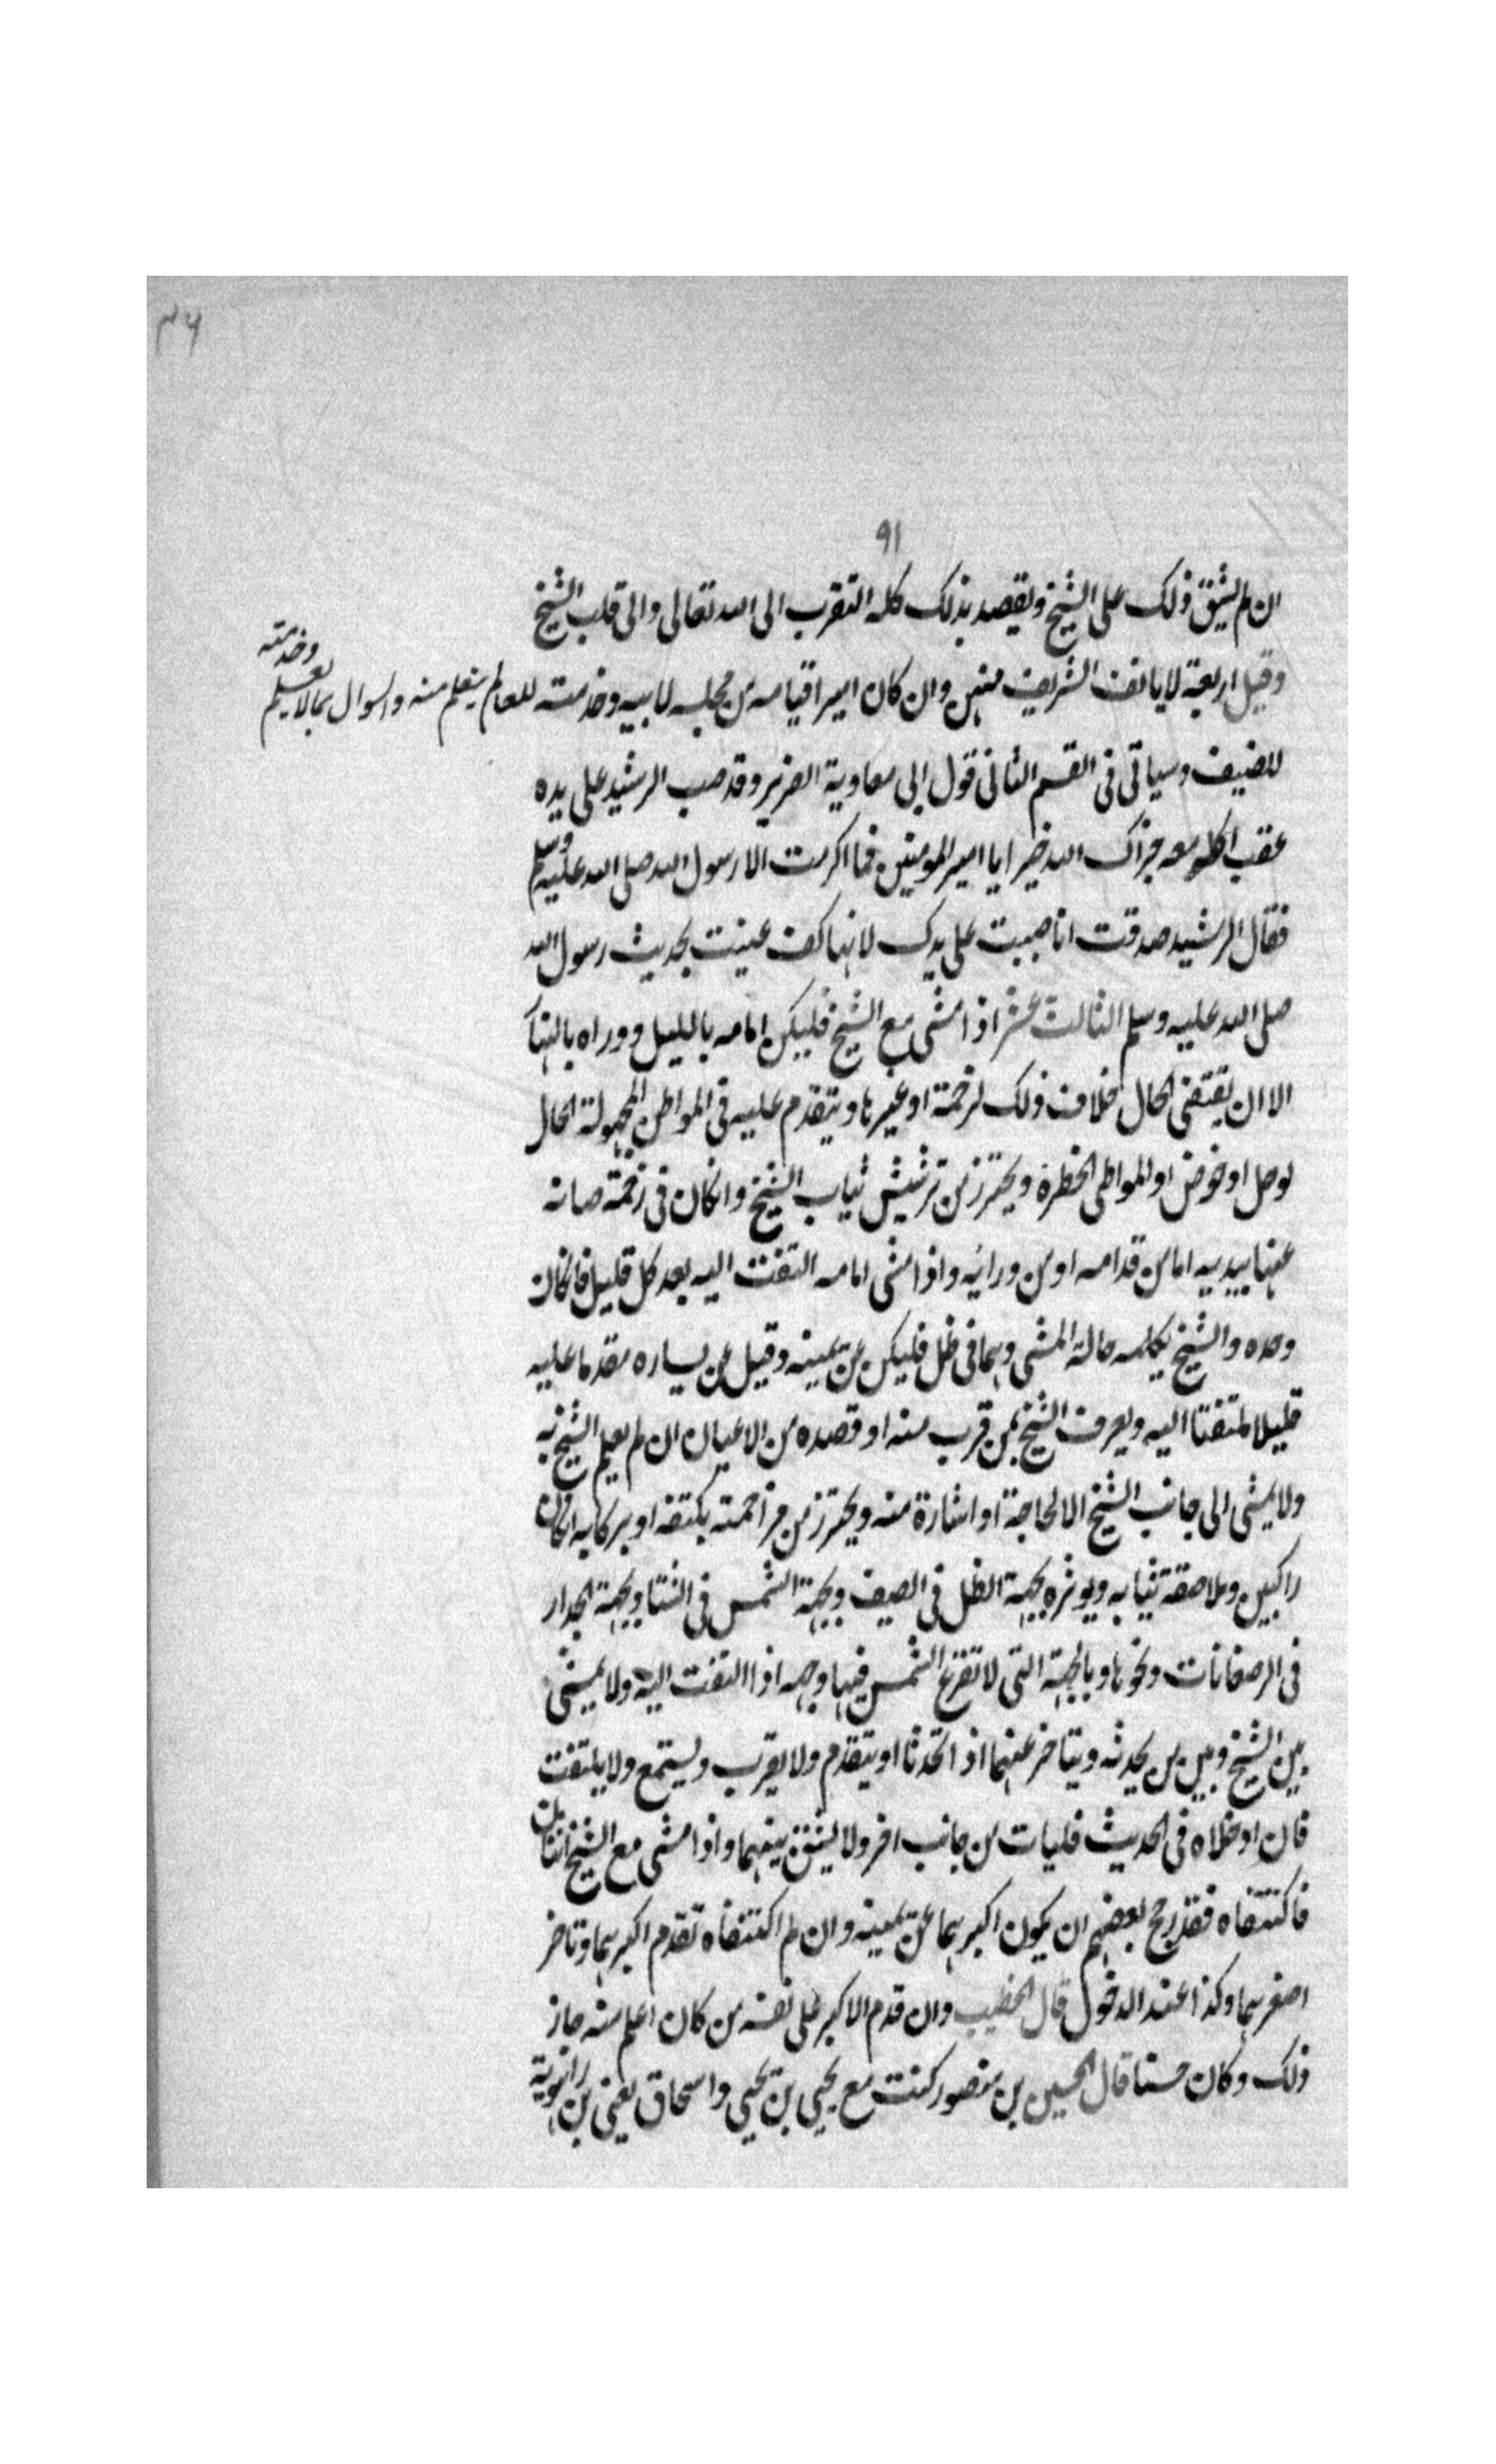 ٣٦
٩١
ان لم يشق ذلك على الشيخ ويقصد بذلك كله التقرب الى الله تعالى والى قلب الشيخ
وقيل اربعة لا يانف الشريف منهن وان كان اميرا قيامه من مجلسه لابيه وخدمته للعالم يتعلم منه والسوال عما لا يعلم وخدمته
للضيف وسياتى فى القسم الثانى قول ابى معاوية الضرير وقد صب الرشيد على يده
عقب اكله معه جزاك الله خيرا يا امير المومنين فما اكرمت الا رسول الله صلى الله عليه وسلم
فقال الرشيد صدقت انا صببت على يدك لانها كف عنيت بحديث رسول الله
صلى الله عليه وسلم الثالث عشر اذا مشى مع الشيخ فليكن امامه بالليل ووراه بالنها
الا ان يقتضى الحال خلاف ذلك لزحمة او غيرها ويتقدم عليه فى المواطن المجهولة الحال
لوحل او خوض او المواطى الخطرة ويحترز من ترشيش ثياب الشيخ وانكان فى زحمة صانه
عنها بيديه اما من قدامه او من ورائه واذا مشى امامه التفت اليه بعد كل قليل فانكان
وحده والشيخ يكلمه حالة المشى وهما فى ظل فليكن عن يمينه وقيل عن يساره مقدما عليه
قليلا ملتفتا اليه ويعرف الشيخ بمن قرب منه او قصده من الاعيان ان لم يعلم الشيخ به
ولا يمشى الى جانب الشيخ الا لحاجة او اشارة منه ويحترز من مزاحمته بكتفه او بركابه انكان
راكبين وملاصقة ثيابه ويوثره بجهة الظل فى الصيف وبجهة الشمس فى الشتا وبجهة الجدار
فى الرصفانات ونحوها وبالجهة التى لا تقرع الشمس فيها وجهه اذا التفت اليه ولا يمشى
بين الشيخ وبين من يحدثه ويتاخر عنهما اذا تحدثا او يتقدم ولا يقرب ويستمع ولا يلتفت
فان ادخلاه فى الحديث فليات من جانب اخر ولا يشق بينهما واذا مشى مع الشيخ اثنان
فاكتنفاه فقد رجح بعضهم ان يكون اكبرهما عن يمينه وان لم اكتنفاه تقدم اكبرهما وتاخر
اصغرهما وكذا عند الدخول قال الخطيب وان قدم الاكبر على نفسه من كان اعلم منه جاز
ذلك وكان حسنا قال الحسين بن منصور كنت مع يحيى بن يحيى واسحاق يعنى بن راهوية